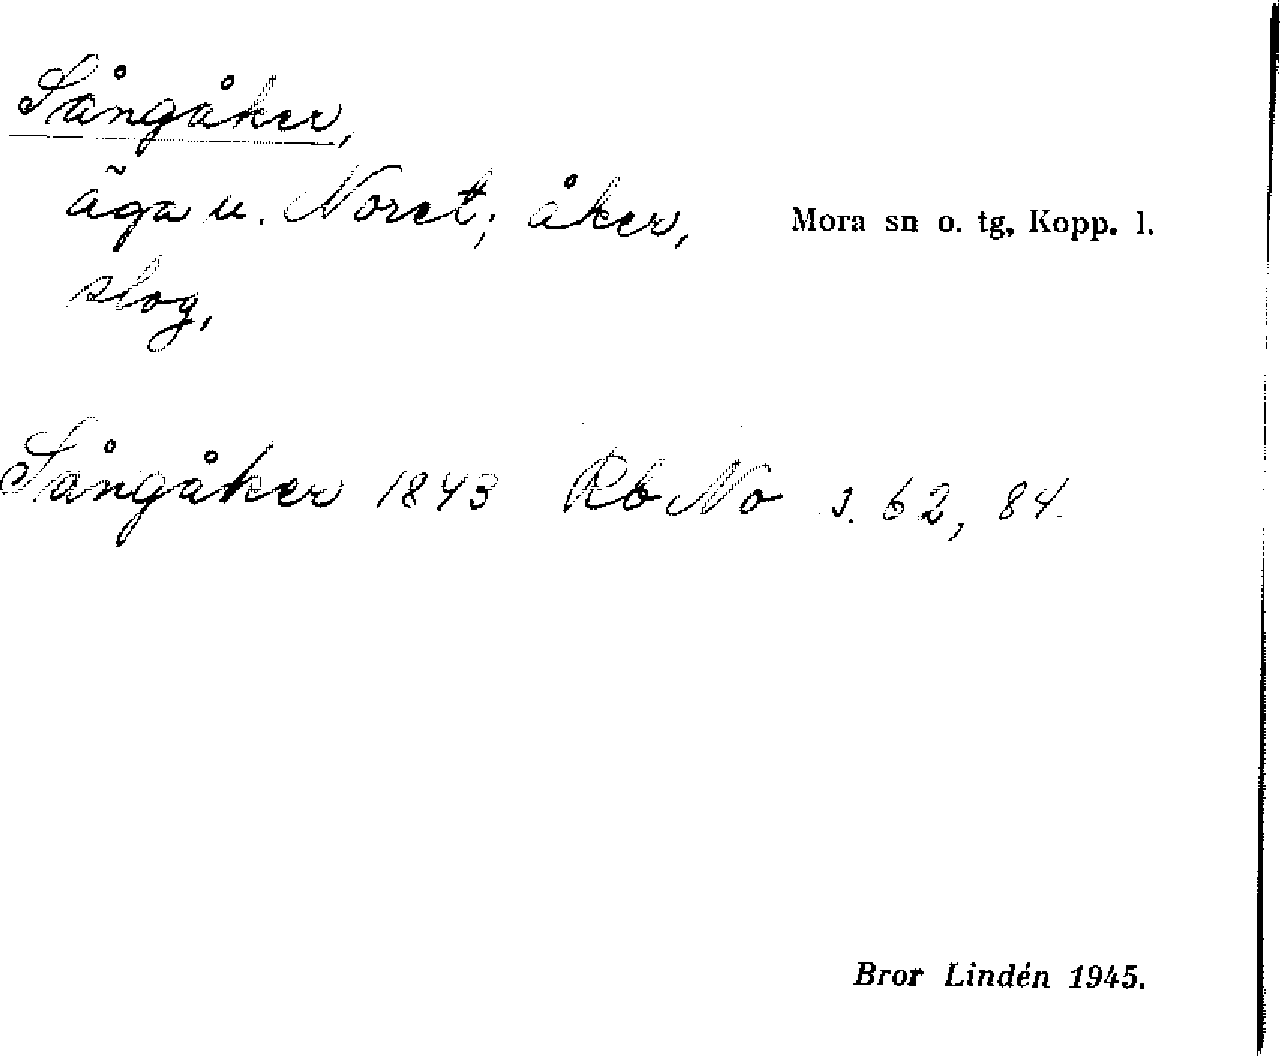 Sångåker,
äga u. Noret; åker,
slog,
Mora sn o. tg, Kopp. l.
Sångåker 1843 Rb No s. 62, 84.
Bror Lindén 1945.